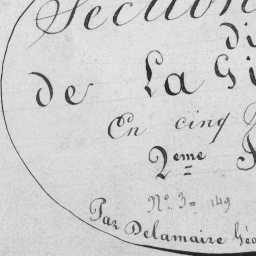 Section
di
de La Gi
En cinq
2eme
N°. 3 = 149
Par Delamaire Géo